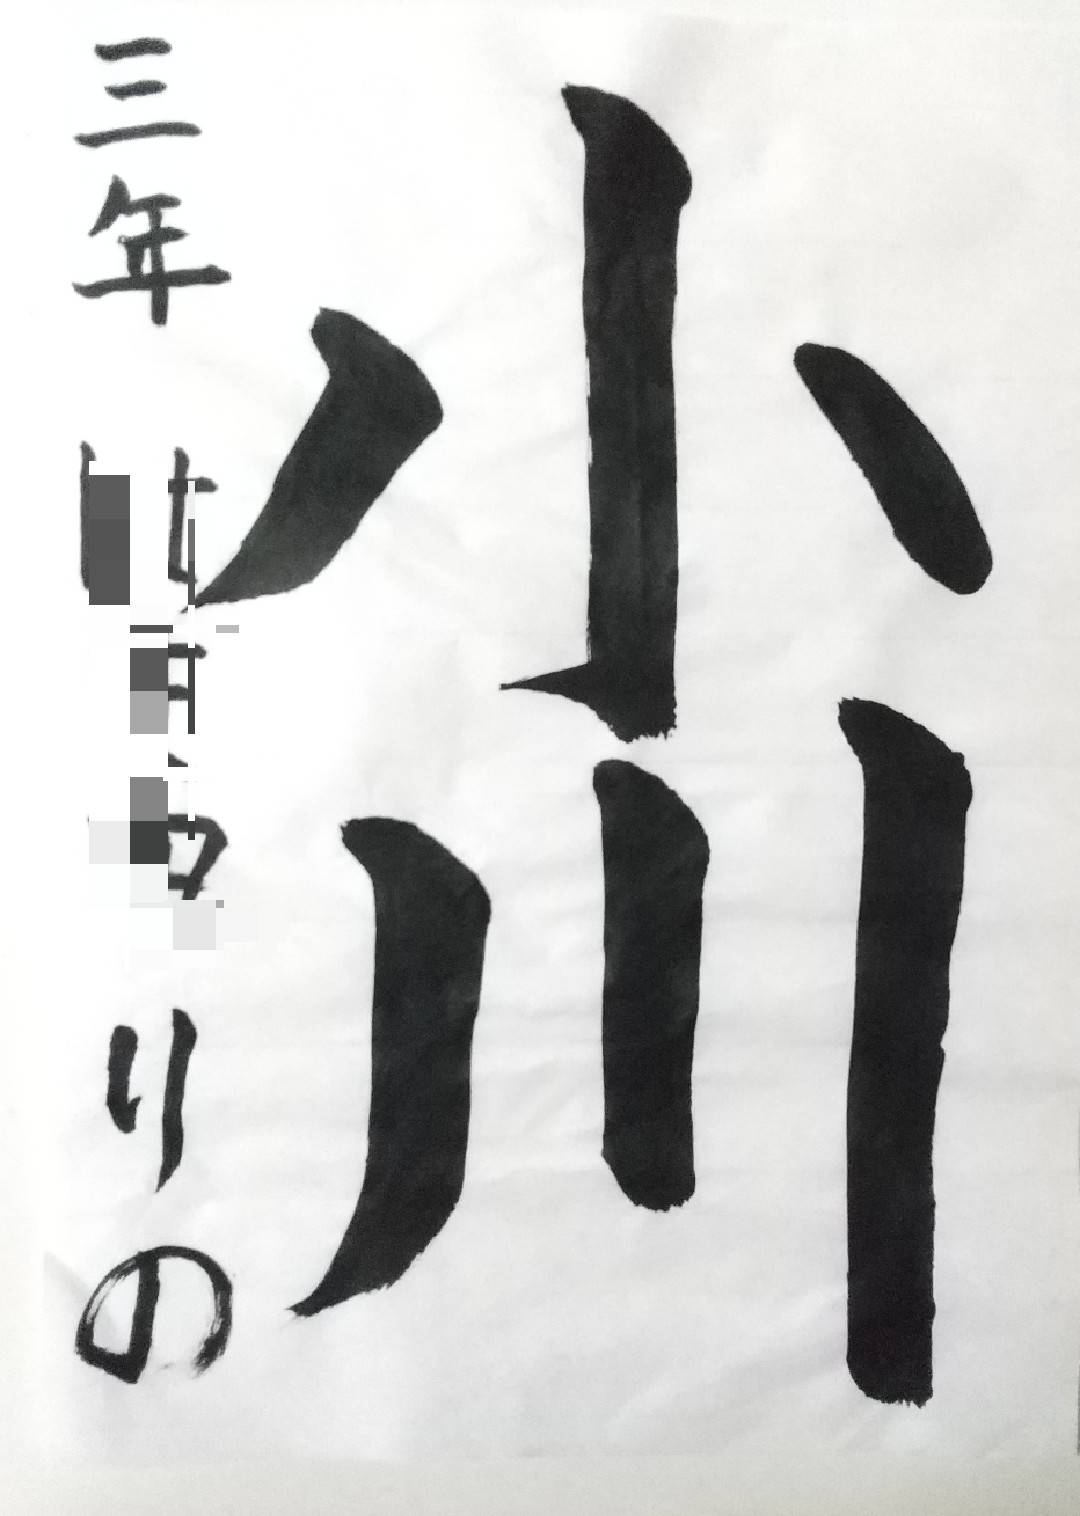 小川
三年 りの